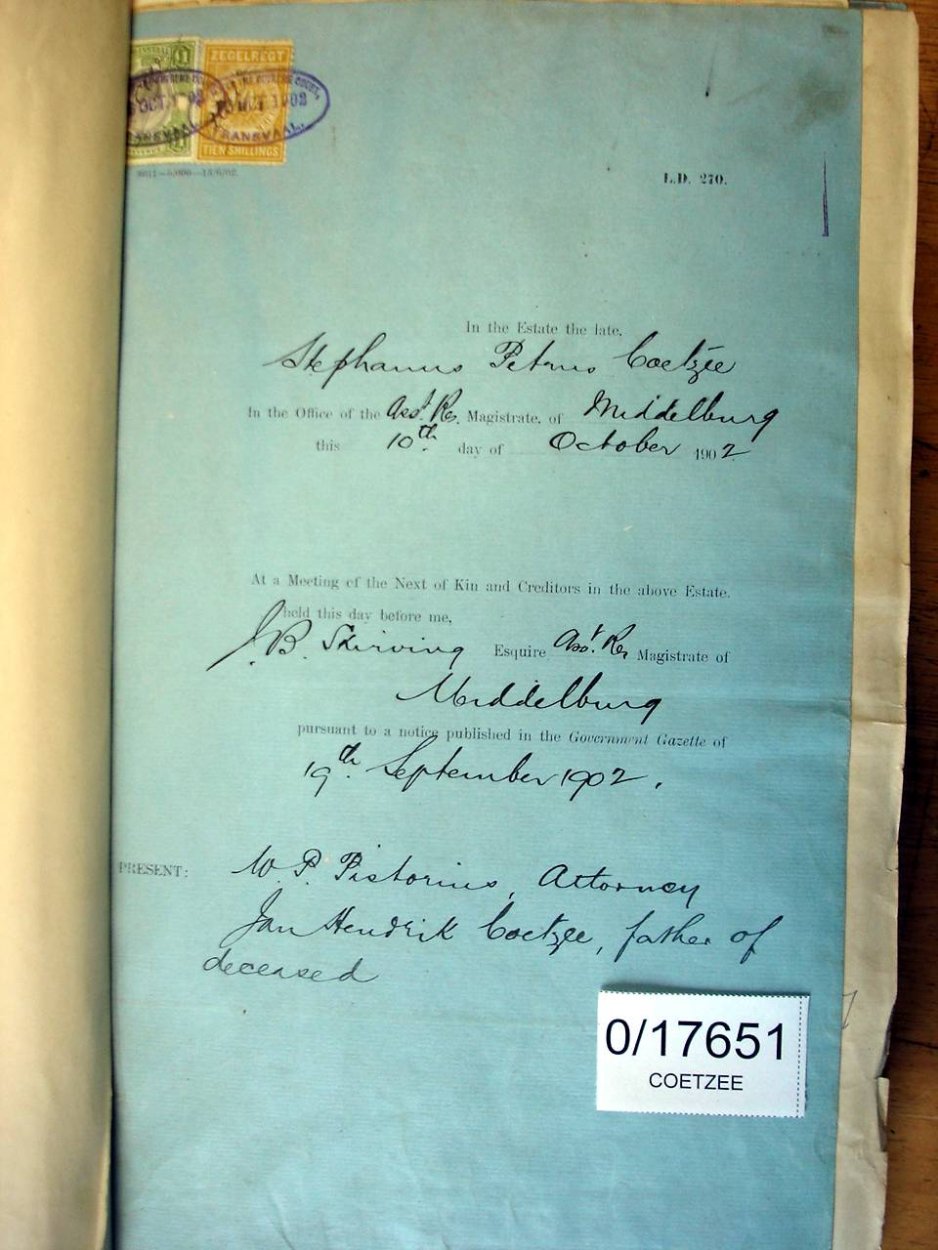 ZEGELREGT
TIEN SHILLINGS
TRANSVAAL.
L.D. 270.
In the Estate the late,
Stephanus Petrus Coetzee
In the Office of the Asst. Res. Magistrate, of Middelburg
this 10th. day of October 1902
At a Meeting of the Next of Kin and Creditors in the above Estate.
held this day before me,
J.B. Skirving Esquire Asst. Res. Magistrate of
Middelburg
pursuant to a notice published in the Government Gazette of
19th. September 1902.
PRESENT: W. P. Pistorius, Attorney
Jan Hendrik Coetzee, father of
deceased
0/17651
COETZEE